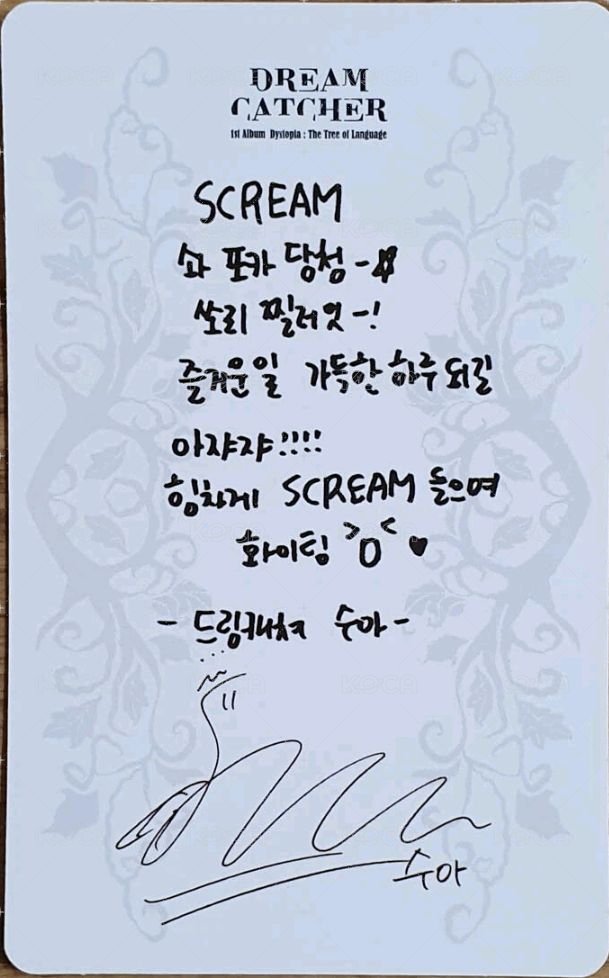 DREAM
CATCHER
1st Album Dystopia : The Tree of Language
SCREAM
솨 포카 당첨 - ☆
쏘리 찔러엇 - !
즐거운일 가득한 하루 되길
아쟈쟈!!!!
힘차게 SCREAM 들으며
화이팅 >O< ♥
- 드림캐쳐 수아 -
수아
KOCA